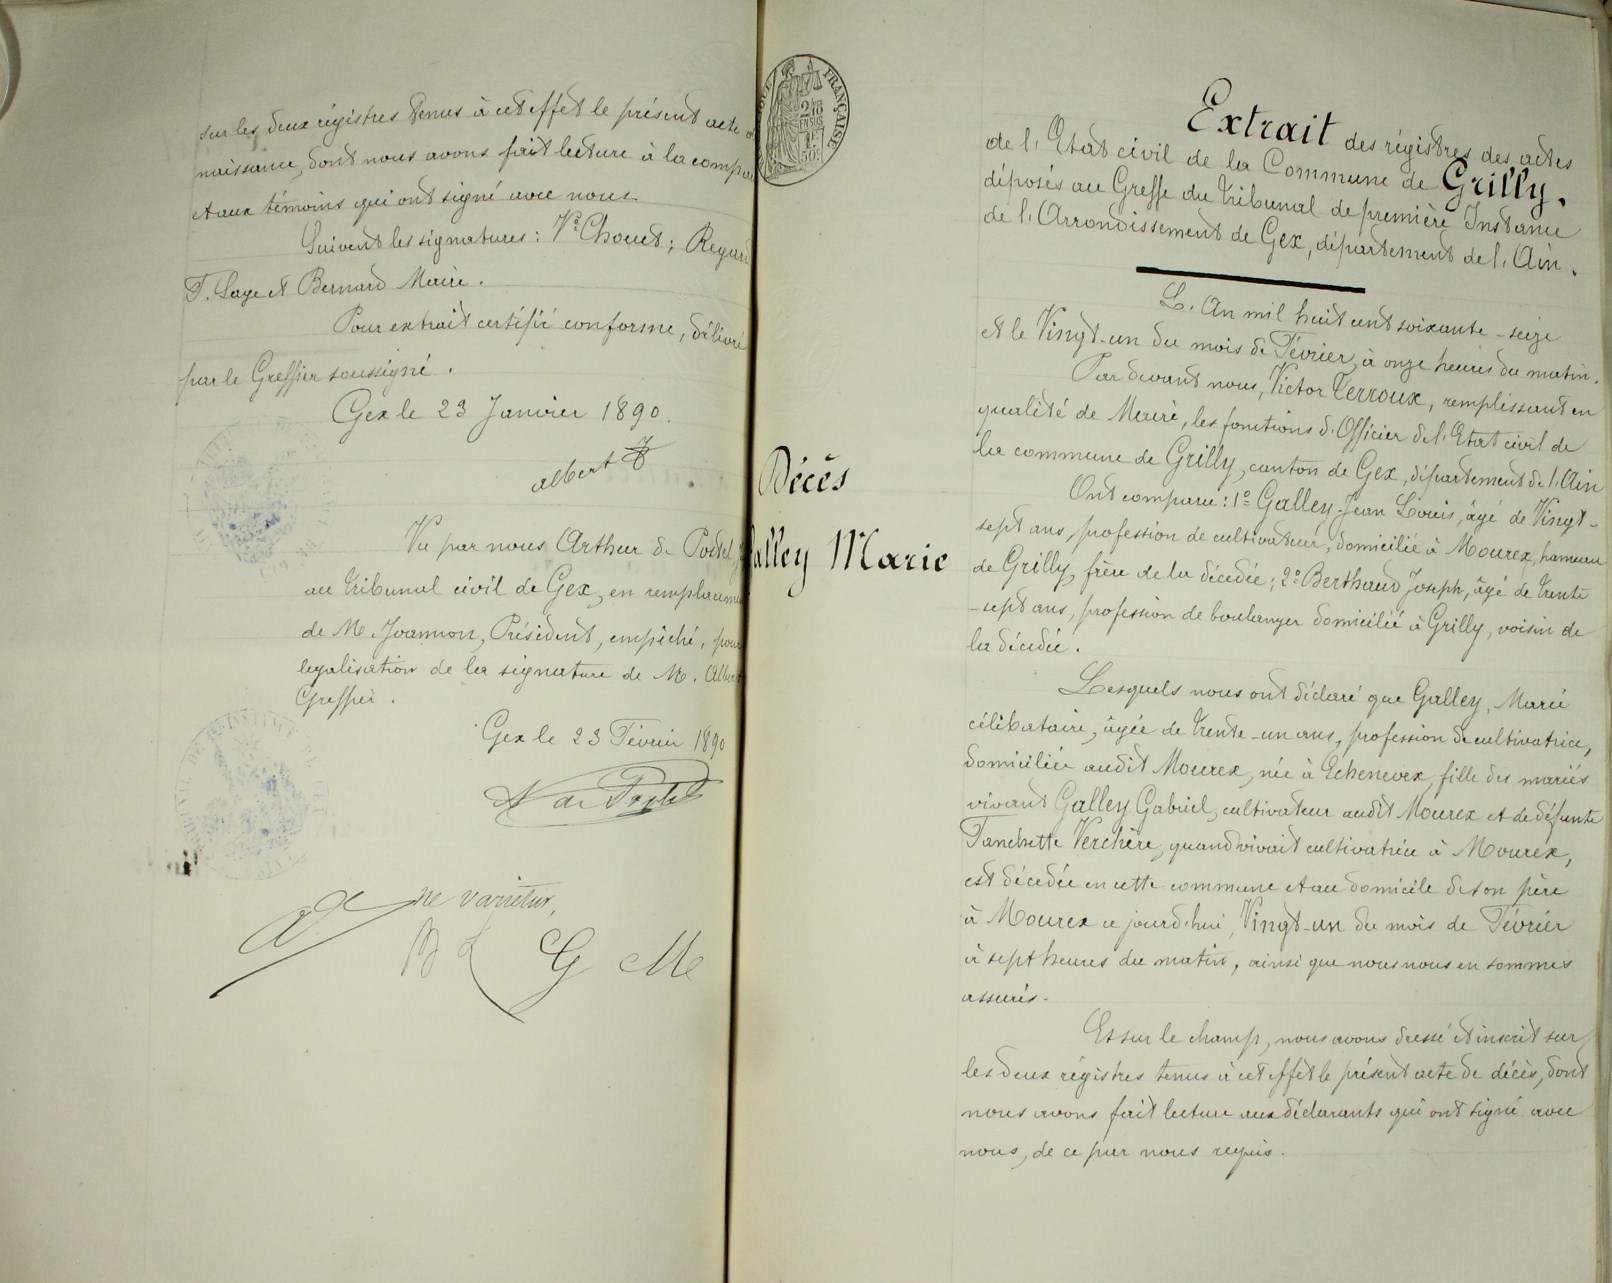 sur les deux régistres tenus à cet effet le présent acte d
naissance, dont nous avons fait lecture à la compar
et aux témoins qui ont signé avec nous
Suivent les signatures : Ve Chouet ; Regard
F. Laye et Bernard Maire.
Pour extrait certifié conforme, délivré
par le Greffier soussigné.
Gex le 23 Janvier 1890.
albert
Vu par nous, Arthur de Postel, J
au tribunal civil de Gex, en remplacemen
de M. Joannon, Président, empêché, pour
legalisation de la signature de M. Albert
Greffier.
Gex le 23 Février 1890
A de Postel
ne varietur,
G Me
RÉPUBLIQUE FRANÇAISE
Décès
Galley Marie
Extrait des régistres des actes
de l'Etat civil de la Commune de Grilly,
déposés au Greffe du Tribunal de première Instance
de l'Arrondissement de Gex, département de l'Ain.
L'An mil huit cent soixante-seize
et le Vingt-un du mois de Février, à onze heures du matin.
Par devant nous, Victor Terroux, remplissant en
qualité de Maire, les fonctions d'Officier de l'Etat civil de
la commune de Grilly, canton de Gex, département de l'Ain
Ont comparu : 1º Galley Jean Louis, âgé de Vingt-
sept ans, profession de cultivateur, domicilié à Mourex, hameau
de Grilly, frère de la décédée ; 2º Berthaud Joseph, âgé de trente
-sept ans, profession de boulanger domicilié à Grilly, voisin de
la décédée.
Lesquels nous ont déclaré que Galley, Marie
célibataire, âgée de trente-un ans, profession de cultivatrice,
domiciliée audit Mourex, née à Echenevex, fille des mariés
vivant Galley Gabriel, cultivateur audit Mourex et de défunte
Fanchette Verchère, quand vivait cultivatrice à Mourex,
est décédée en cette commune et au domicile de son père
à Mourex ce jourd'hui, Vingt-un du mois de Février
à sept heures du matin, ainsi que nous nous en sommes
assurés.
Et sur le champ, nous avons dressé et inscrit sur
les deux régistres tenus à cet effet le présent acte de décès, dont
nous avons fait lecture aux déclarants qui ont signé avec
nous, de ce par nous requis.